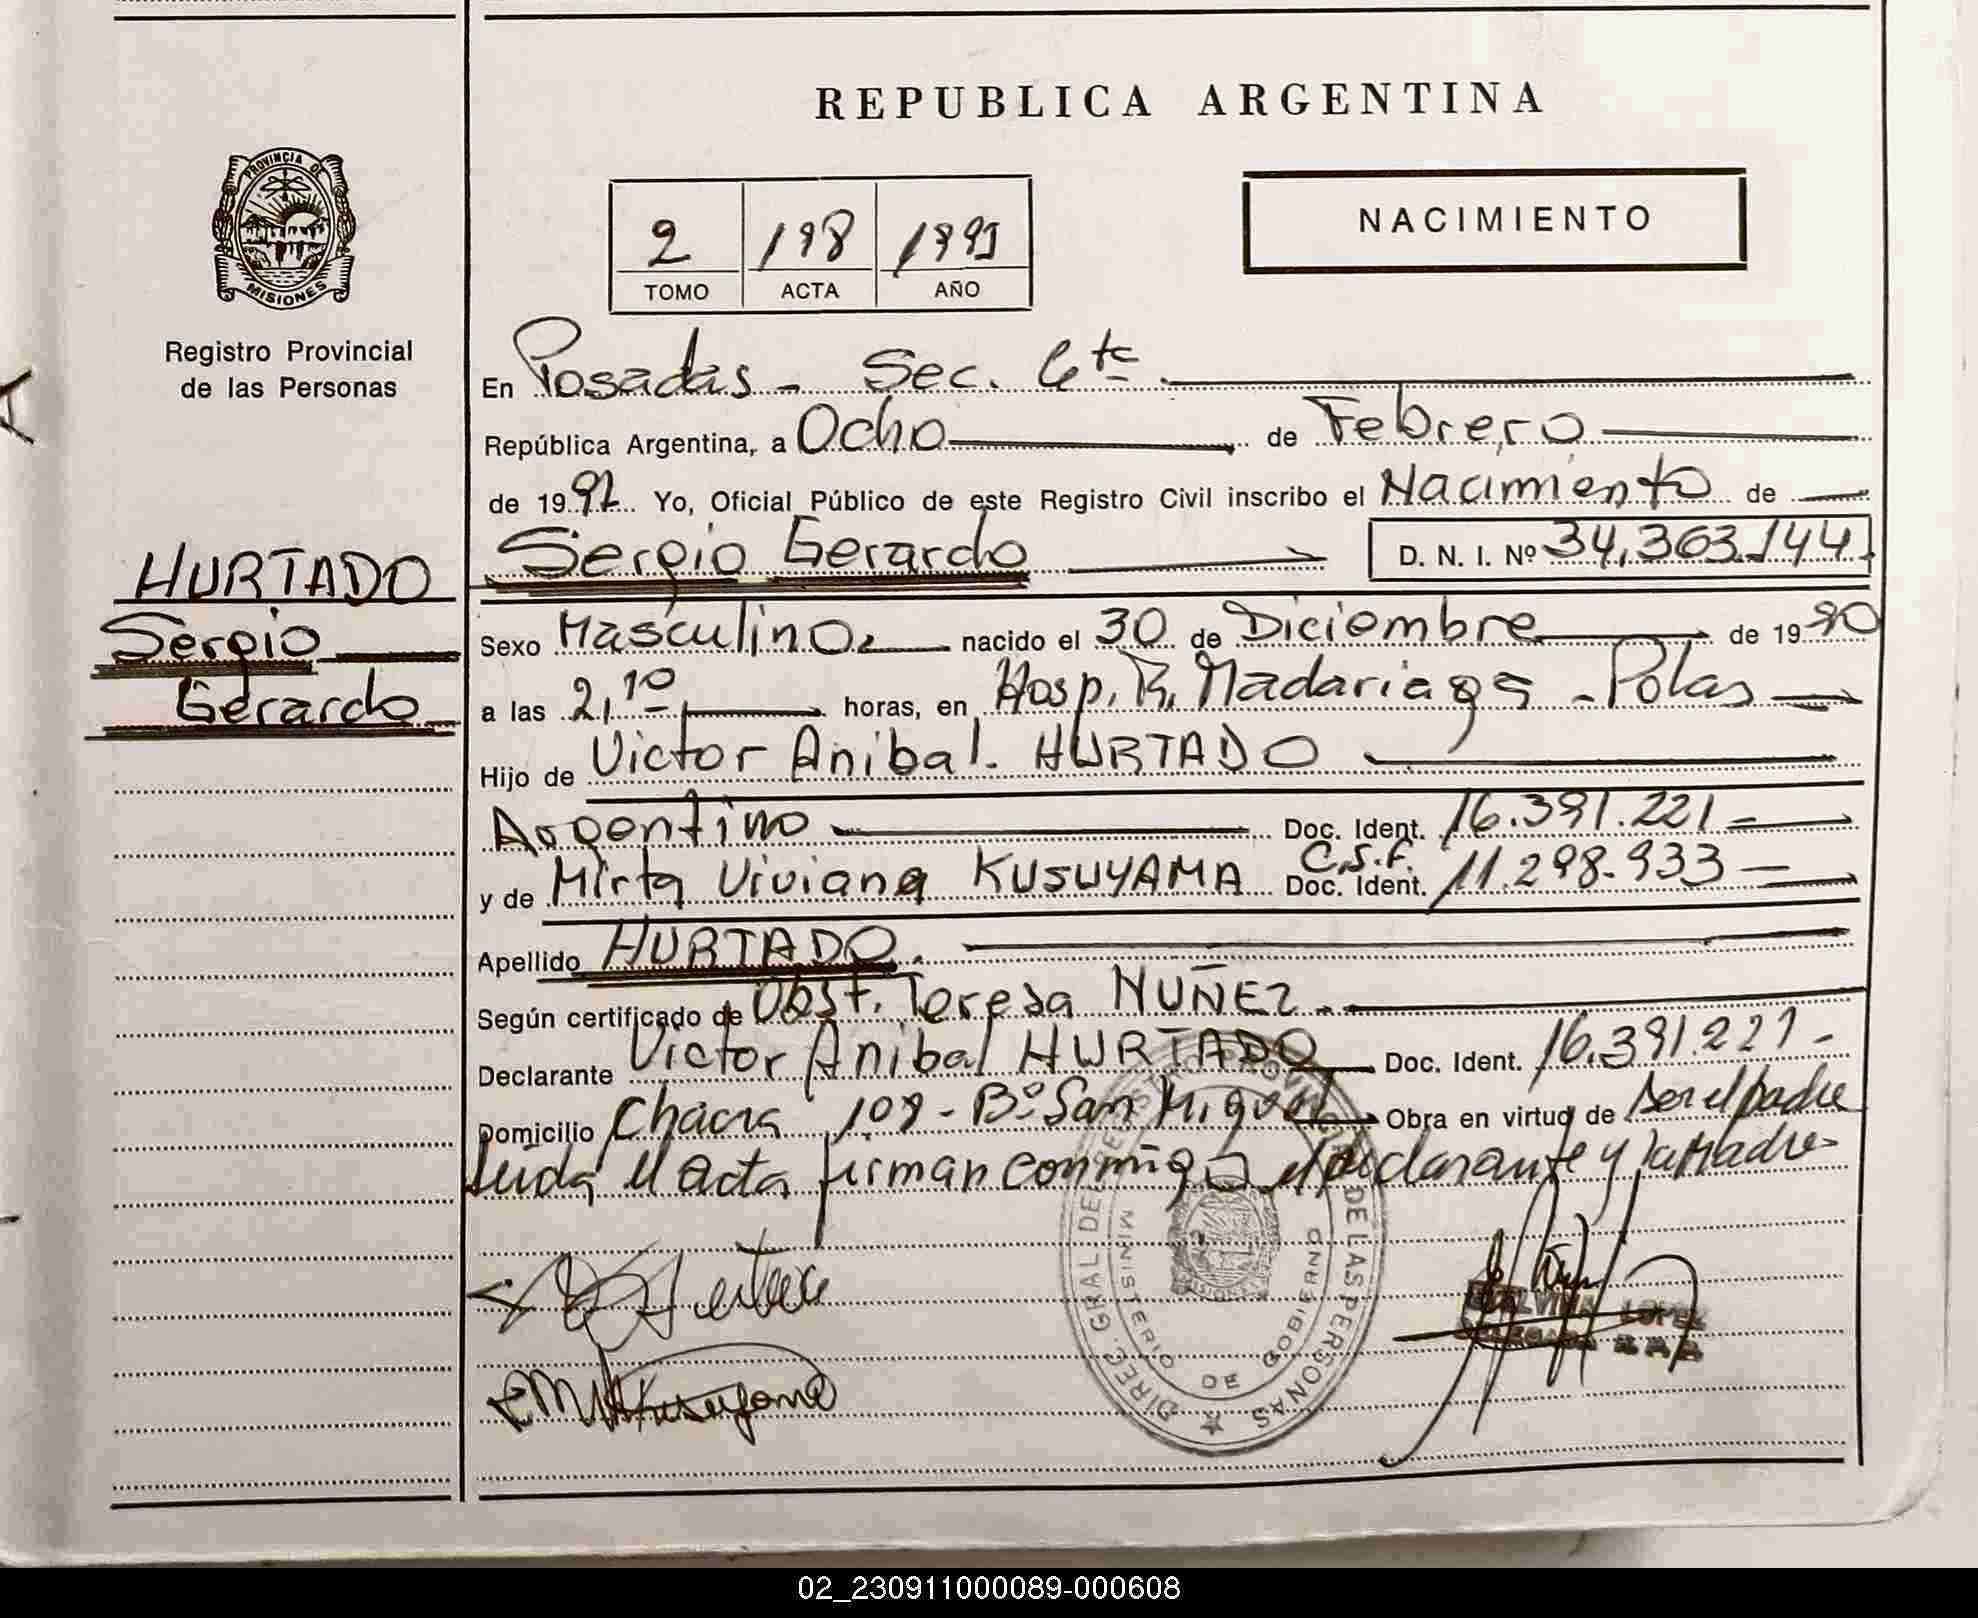 REPUBLICA ARGENTINA
PROVINCIA DE
MISIONES
Registro Provincial
de las Personas
NACIMIENTO
2 198 1991
TOMO ACTA AÑO
En Posadas - Sec. 6ta
República Argentina, a Ocho de Febrero
de 1991 Yo, Oficial Público de este Registro Civil inscribo el Nacimiento de
HURTADO
Sergio
Gerardo
Sergio Gerardo D. N. I. Nº 34.363.144
Sexo Masculino nacido el 30 de Diciembre de 1990
a las 2,10 horas, en Hosp. R. Madariaga - Pdas
Hijo de Victor Anibal HURTADO
Argentino Doc. Ident. 16.391.221 -
y de Mirta Viviana KUSUYAMA C.S.F. Doc. Ident. 11.298.933 -
Apellido HURTADO.
Según certificado de Obst. Teresa NUÑEZ.
Declarante Victor Anibal HURTADO Doc. Ident. 16.391.221 -
Domicilio Chacra 109 - Bº San Miguel Obra en virtud de ser el padre
Leida el acta firman conmigo el declarante y la Madre
DIREC. GRAL DE DE LAS PERSONAS
MINISTERIO DE GOBIERNO
LOPEZ
02_230911000089-000608